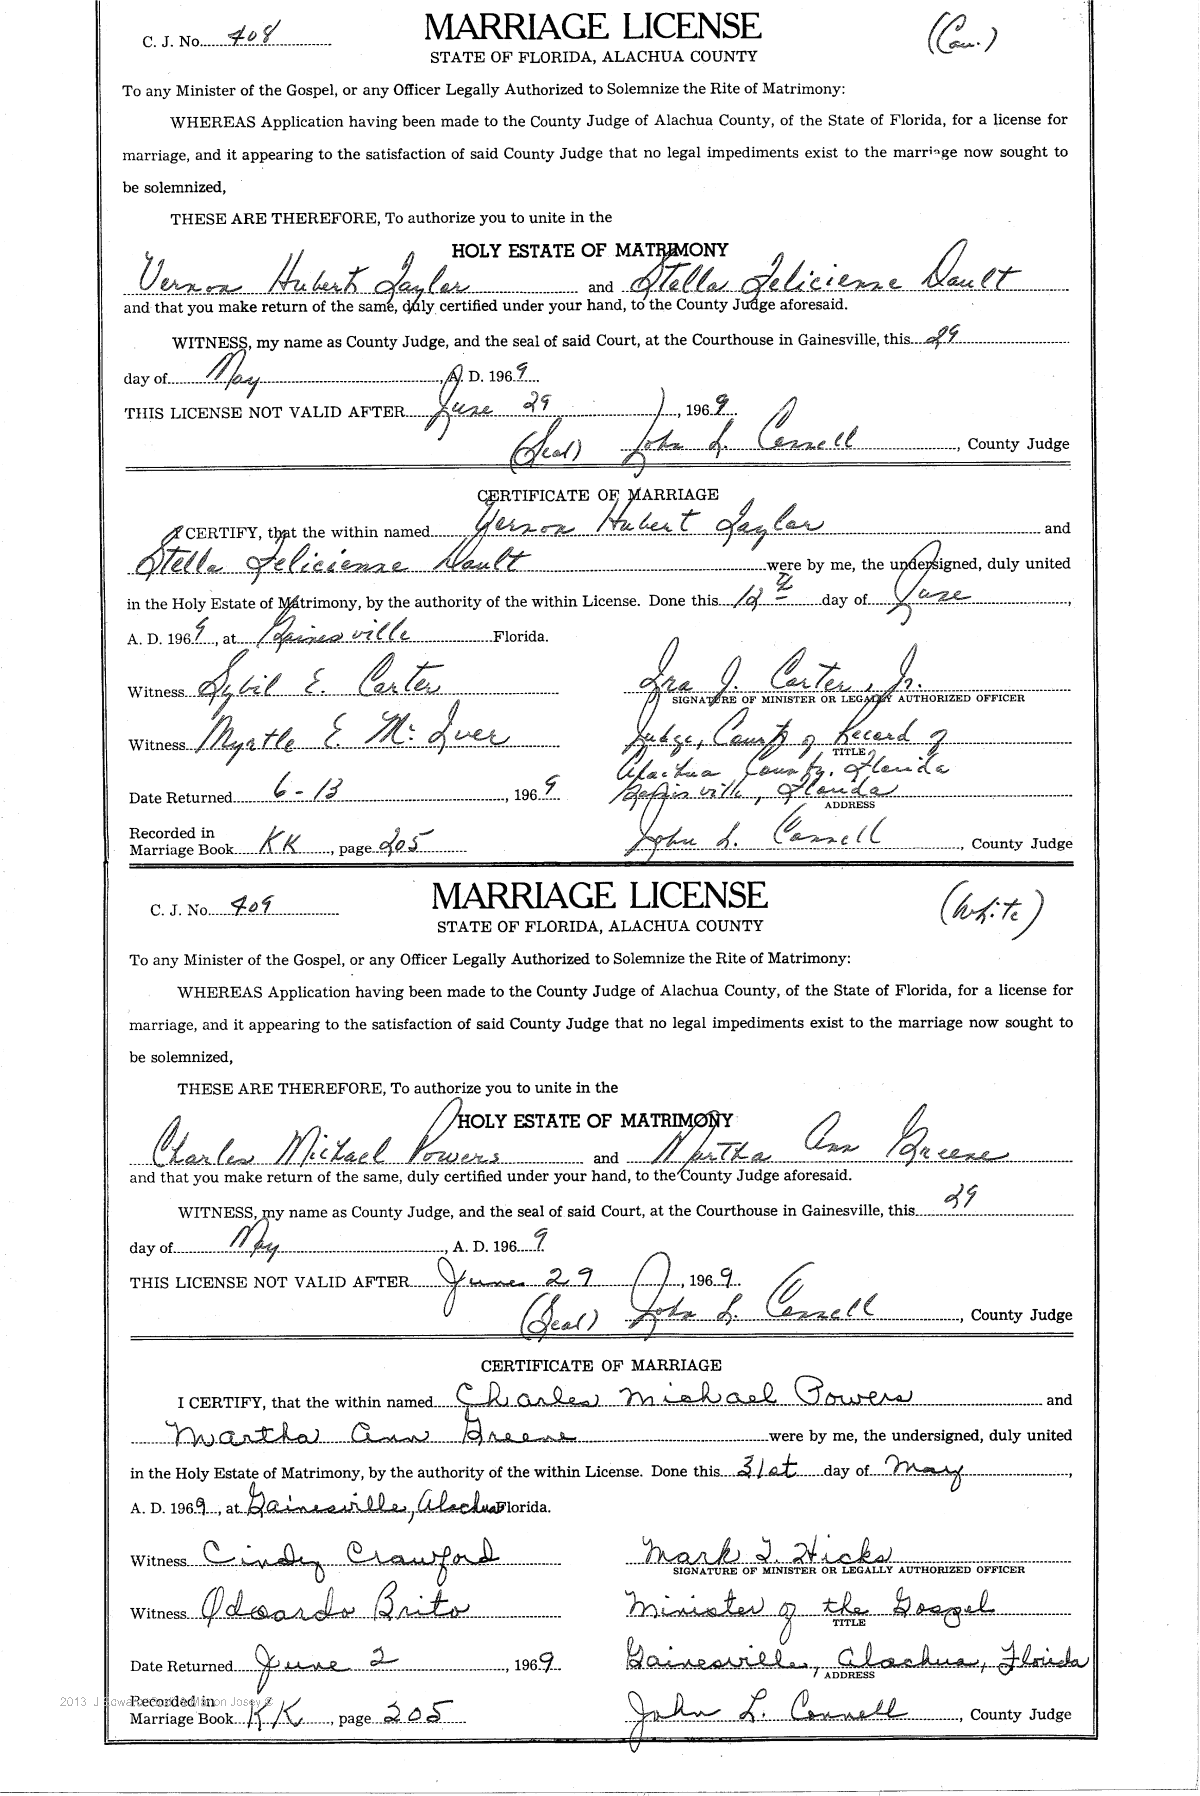 C. J. No. 408
MARRIAGE LICENSE
(Cau.)
STATE OF FLORIDA, ALACHUA COUNTY
To any Minister of the Gospel, or any Officer Legally Authorized to Solemnize the Rite of Matrimony:
WHEREAS Application having been made to the County Judge of Alachua County, of the State of Florida, for a license for
marriage, and it appearing to the satisfaction of said County Judge that no legal impediments exist to the marriage now sought to
be solemnized,
THESE ARE THEREFORE, To authorize you to unite in the
HOLY ESTATE OF MATRIMONY
Vernon Hubert Taylor and Stella Felicienne Dault
and that you make return of the same, duly certified under your hand, to the County Judge aforesaid.
WITNESS, my name as County Judge, and the seal of said Court, at the Courthouse in Gainesville, this 29
day of May, A. D. 1969
THIS LICENSE NOT VALID AFTER June 29, 1969
(Seal) John L. Connell, County Judge
CERTIFICATE OF MARRIAGE
I CERTIFY, that the within named Vernon Hubert Taylor and
Stella Felicienne Dault were by me, the undersigned, duly united
in the Holy Estate of Matrimony, by the authority of the within License. Done this 12th day of June,
A. D. 1969, at Gainesville Florida.
Witness Sybil E. Carter Ira J. Carter, Jr.
SIGNATURE OF MINISTER OR LEGALLY AUTHORIZED OFFICER
Witness Myrtle E. McIver Judge, County of Record of
TITLE
Alachua County, Florida
Date Returned 6-13, 1969 Gainesville, Florida
ADDRESS
Recorded in
Marriage Book KK, page 205 John L. Connell, County Judge
C. J. No. 409
MARRIAGE LICENSE
(White)
STATE OF FLORIDA, ALACHUA COUNTY
To any Minister of the Gospel, or any Officer Legally Authorized to Solemnize the Rite of Matrimony:
WHEREAS Application having been made to the County Judge of Alachua County, of the State of Florida, for a license for
marriage, and it appearing to the satisfaction of said County Judge that no legal impediments exist to the marriage now sought to
be solemnized,
THESE ARE THEREFORE, To authorize you to unite in the
HOLY ESTATE OF MATRIMONY
Charles Michael Powers and Martha Ann Greene
and that you make return of the same, duly certified under your hand, to the County Judge aforesaid.
WITNESS, my name as County Judge, and the seal of said Court, at the Courthouse in Gainesville, this 29
day of May, A. D. 1969
THIS LICENSE NOT VALID AFTER June 29, 1969
(Seal) John L. Connell, County Judge
CERTIFICATE OF MARRIAGE
I CERTIFY, that the within named Charles Michael Powers and
Martha Ann Greene were by me, the undersigned, duly united
in the Holy Estate of Matrimony, by the authority of the within License. Done this 31st day of May,
A. D. 1969, at Gainesville, Alachua Florida.
Witness Cindy Crawford Mark T. Hicks
SIGNATURE OF MINISTER OR LEGALLY AUTHORIZED OFFICER
Witness Odoardo Brito Minister of the Gospel
TITLE
Date Returned June 2, 1969 Gainesville, Alachua, Florida
ADDRESS
Recorded in
Marriage Book KK, page 205 John L. Connell, County Judge
2013 J Edward
Josey ©